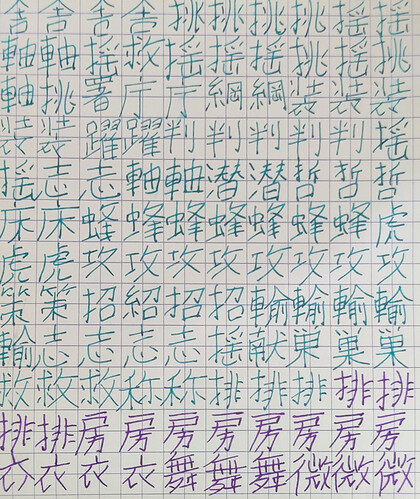 舎舎舎舎挑挑挑挑揺挑
軸軸揺救揺揺揺挑揺揺
軸挑署庁庁綱綱装装装
装装躍躍判判判判判揺
揺志志軸軸潜潜哲哲哲
床床蜂蜂蜂蜂蜂蜂蜂虎
虎虎攻攻攻攻攻攻攻攻
策策招紹招招輸輸輸輸
輸志志志志揺献巣巣巣
救救救称称排排排排排
排排房房房房房房房房
衣衣衣衣舞舞舞微微微